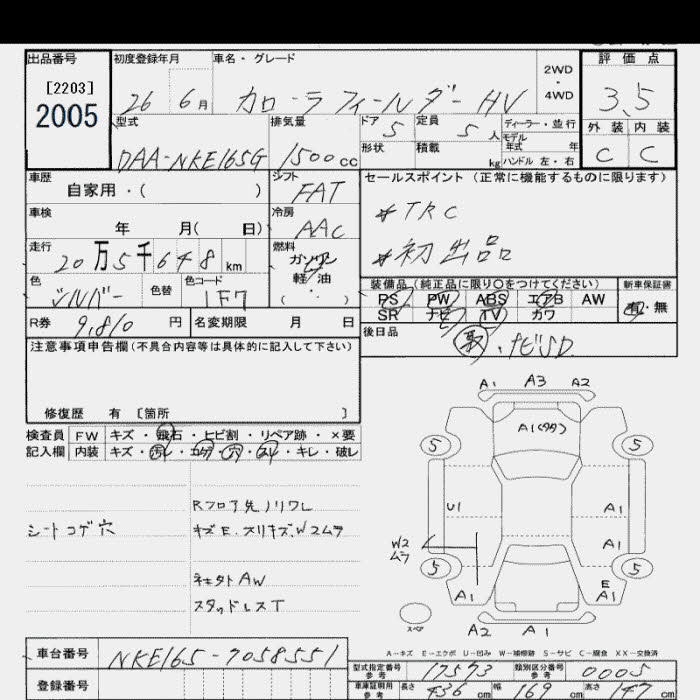 出品番号
[2203]
2005
初度登録年月
26 6月
車名・グレード
カローラフィールダー HV
2WD
・
4WD
評価点
3.5
外装 内装
C C
型式
DAA-NKE165G
排気量
1500cc
ドア 5
定員 5人
ディーラー・並行
モデル
年式 年
形状
積載 kg
ハンドル 左・右
車歴
自家用・( )
シフト
FAT
セールスポイント (正常に機能するものに限ります)
#TRC
#初出品
車検
年 月( 日)
冷房
AAC
走行
20万5千648km
燃料
ガソリン
軽油
( ・ )
色
シルバー
色替
色コード
1F7
装備品(純正品に限り○をつけてください)
PS PW ABS エアB AW
SR ナビ TV カワ
新車保証書
有・無
R券 9,810円
名変期限 月 日
後日品
取・ナビSD
注意事項申告欄(不具合内容等は具体的に記入して下さい)
修復歴 有 [箇所 ]
検査員
記入欄
FW キズ・飛石・ヒビ割・リペア跡・×要
内装 キズ・汚レ・コゲ・穴・スレ・キレ・破レ
シートコゲ穴
Rフロア先ノリワレ
キズE.スリキズ.W2ムラ
ネセタトAW
スタッドレスT
A1 A3 A2
A1(タタ)
5 5
U1 A1
W2
ムラ
A1
5 5
A1
E
A1
スペア
A2 A1
A-キズ E-エクボ U-凹み W-補修跡 S-サビ C-腐食 XX-交換済
車台番号
NKE165-7058551
登録番号
型式指定番号
参考
17573
類別区分番号
参考
0005
車庫証明用
参考
長さ 436cm 幅 169cm 高さ 147cm